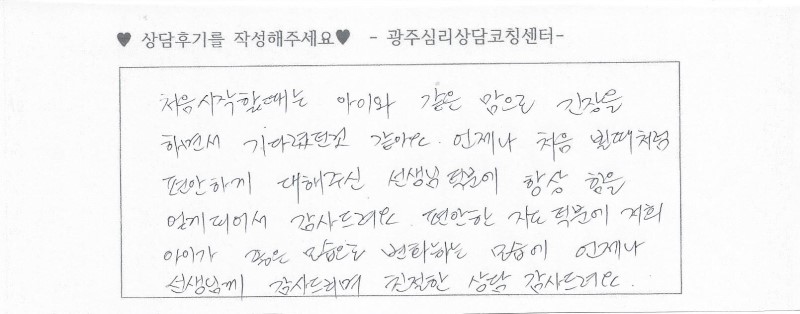 ♥ 상담후기를 작성해주세요♥ - 광주심리상담코칭센터-
처음시작할때는 아이와 같은 맘으로 긴장을
하면서 기다렸던것 같아요. 언제나 처음 뵐때처럼
편안하게 대해주신 선생님 덕분에 항상 힘을
얻게되어서 감사드려요. 편안한 지도 덕분에 저희
아이가 좋은 모습으로 변화하는 모습에 언제나
선생님께 감사드리며 친절한 상담 감사드려요.